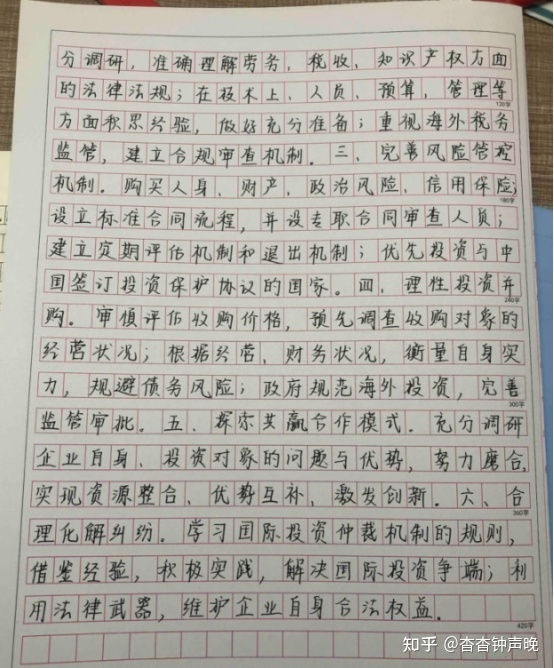 分调研，准确理解劳务、税收、知识产权方面
的法律法规；在技术上、人员、预算，管理等
120字
方面积累经验，做好充分准备；重视海外税务
监管，建立合规审查机制。三、完善风险管控
机制。购买人身、财产、政治风险、信用保险；
180字
设立标准合同流程，并设专职合同审查人员；
建立定期评估机制和退出机制；优先投资与中
国签订投资保护协议的国家。四、理性投资并
240字
购。审慎评估收购价格，预先调查收购对象的
经营状况；根据经营、财务状况，衡量自身实
力，规避债务风险；政府规范海外投资，完善
300字
监管审批。五、探索共赢合作模式。充分调研
企业自身、投资对象的问题与优势，努力磨合，
实现资源整合、优势互补、激发创新。六、合
360字
理化解纠纷。学习国际投资仲裁机制的规则，
借鉴经验，积极实践，解决国际投资争端；利
用法律武器，维护企业自身合法权益。
420字
知乎 @杳杳钟声晚